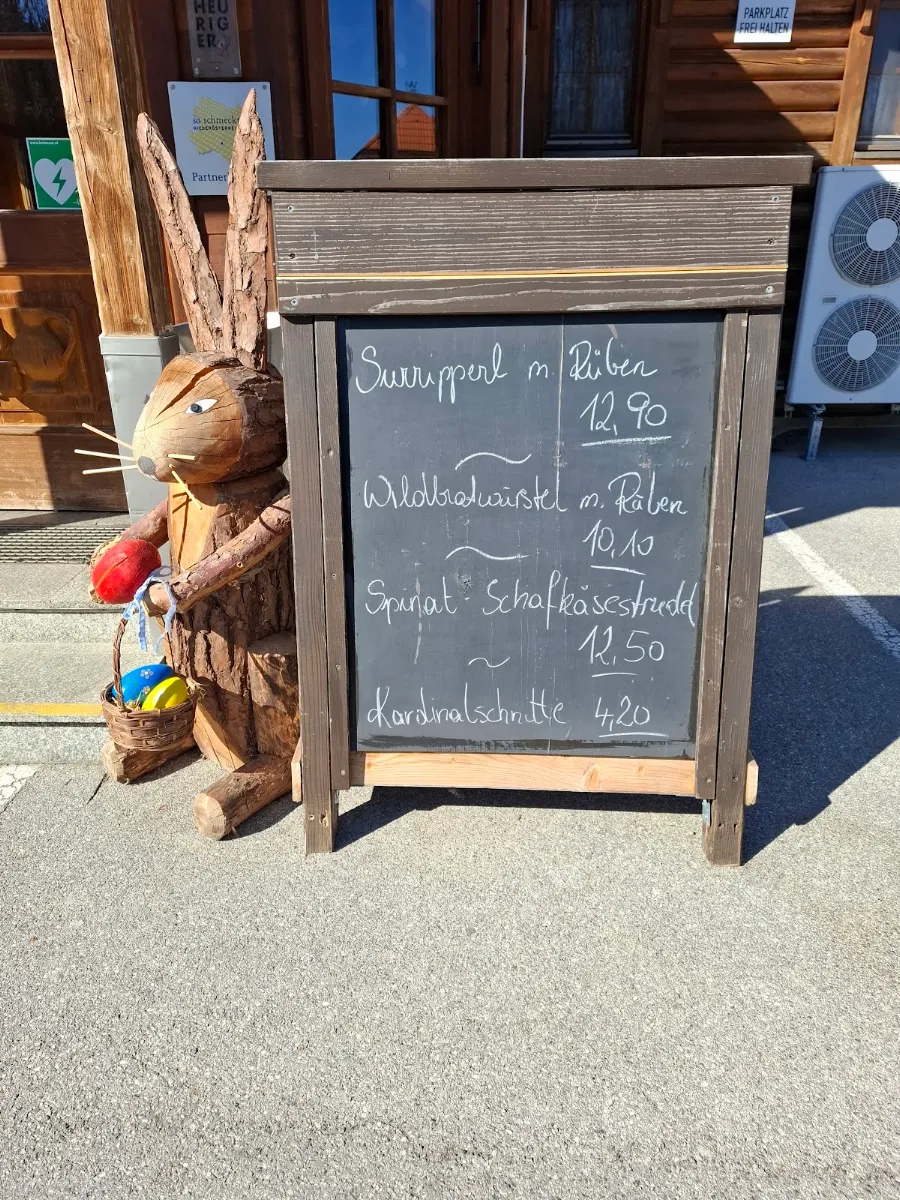 HEU
RIG
ER
so schmeckt
NIEDERÖSTERREICH
Partner
PARKPLATZ
FREI HALTEN
Surripperl m. Rüben
12,90
Wildbratwürstel m. Rüben
10,10
Spinat - Schafkäsestrudel
12,50
Kardinalschnitte 4,20